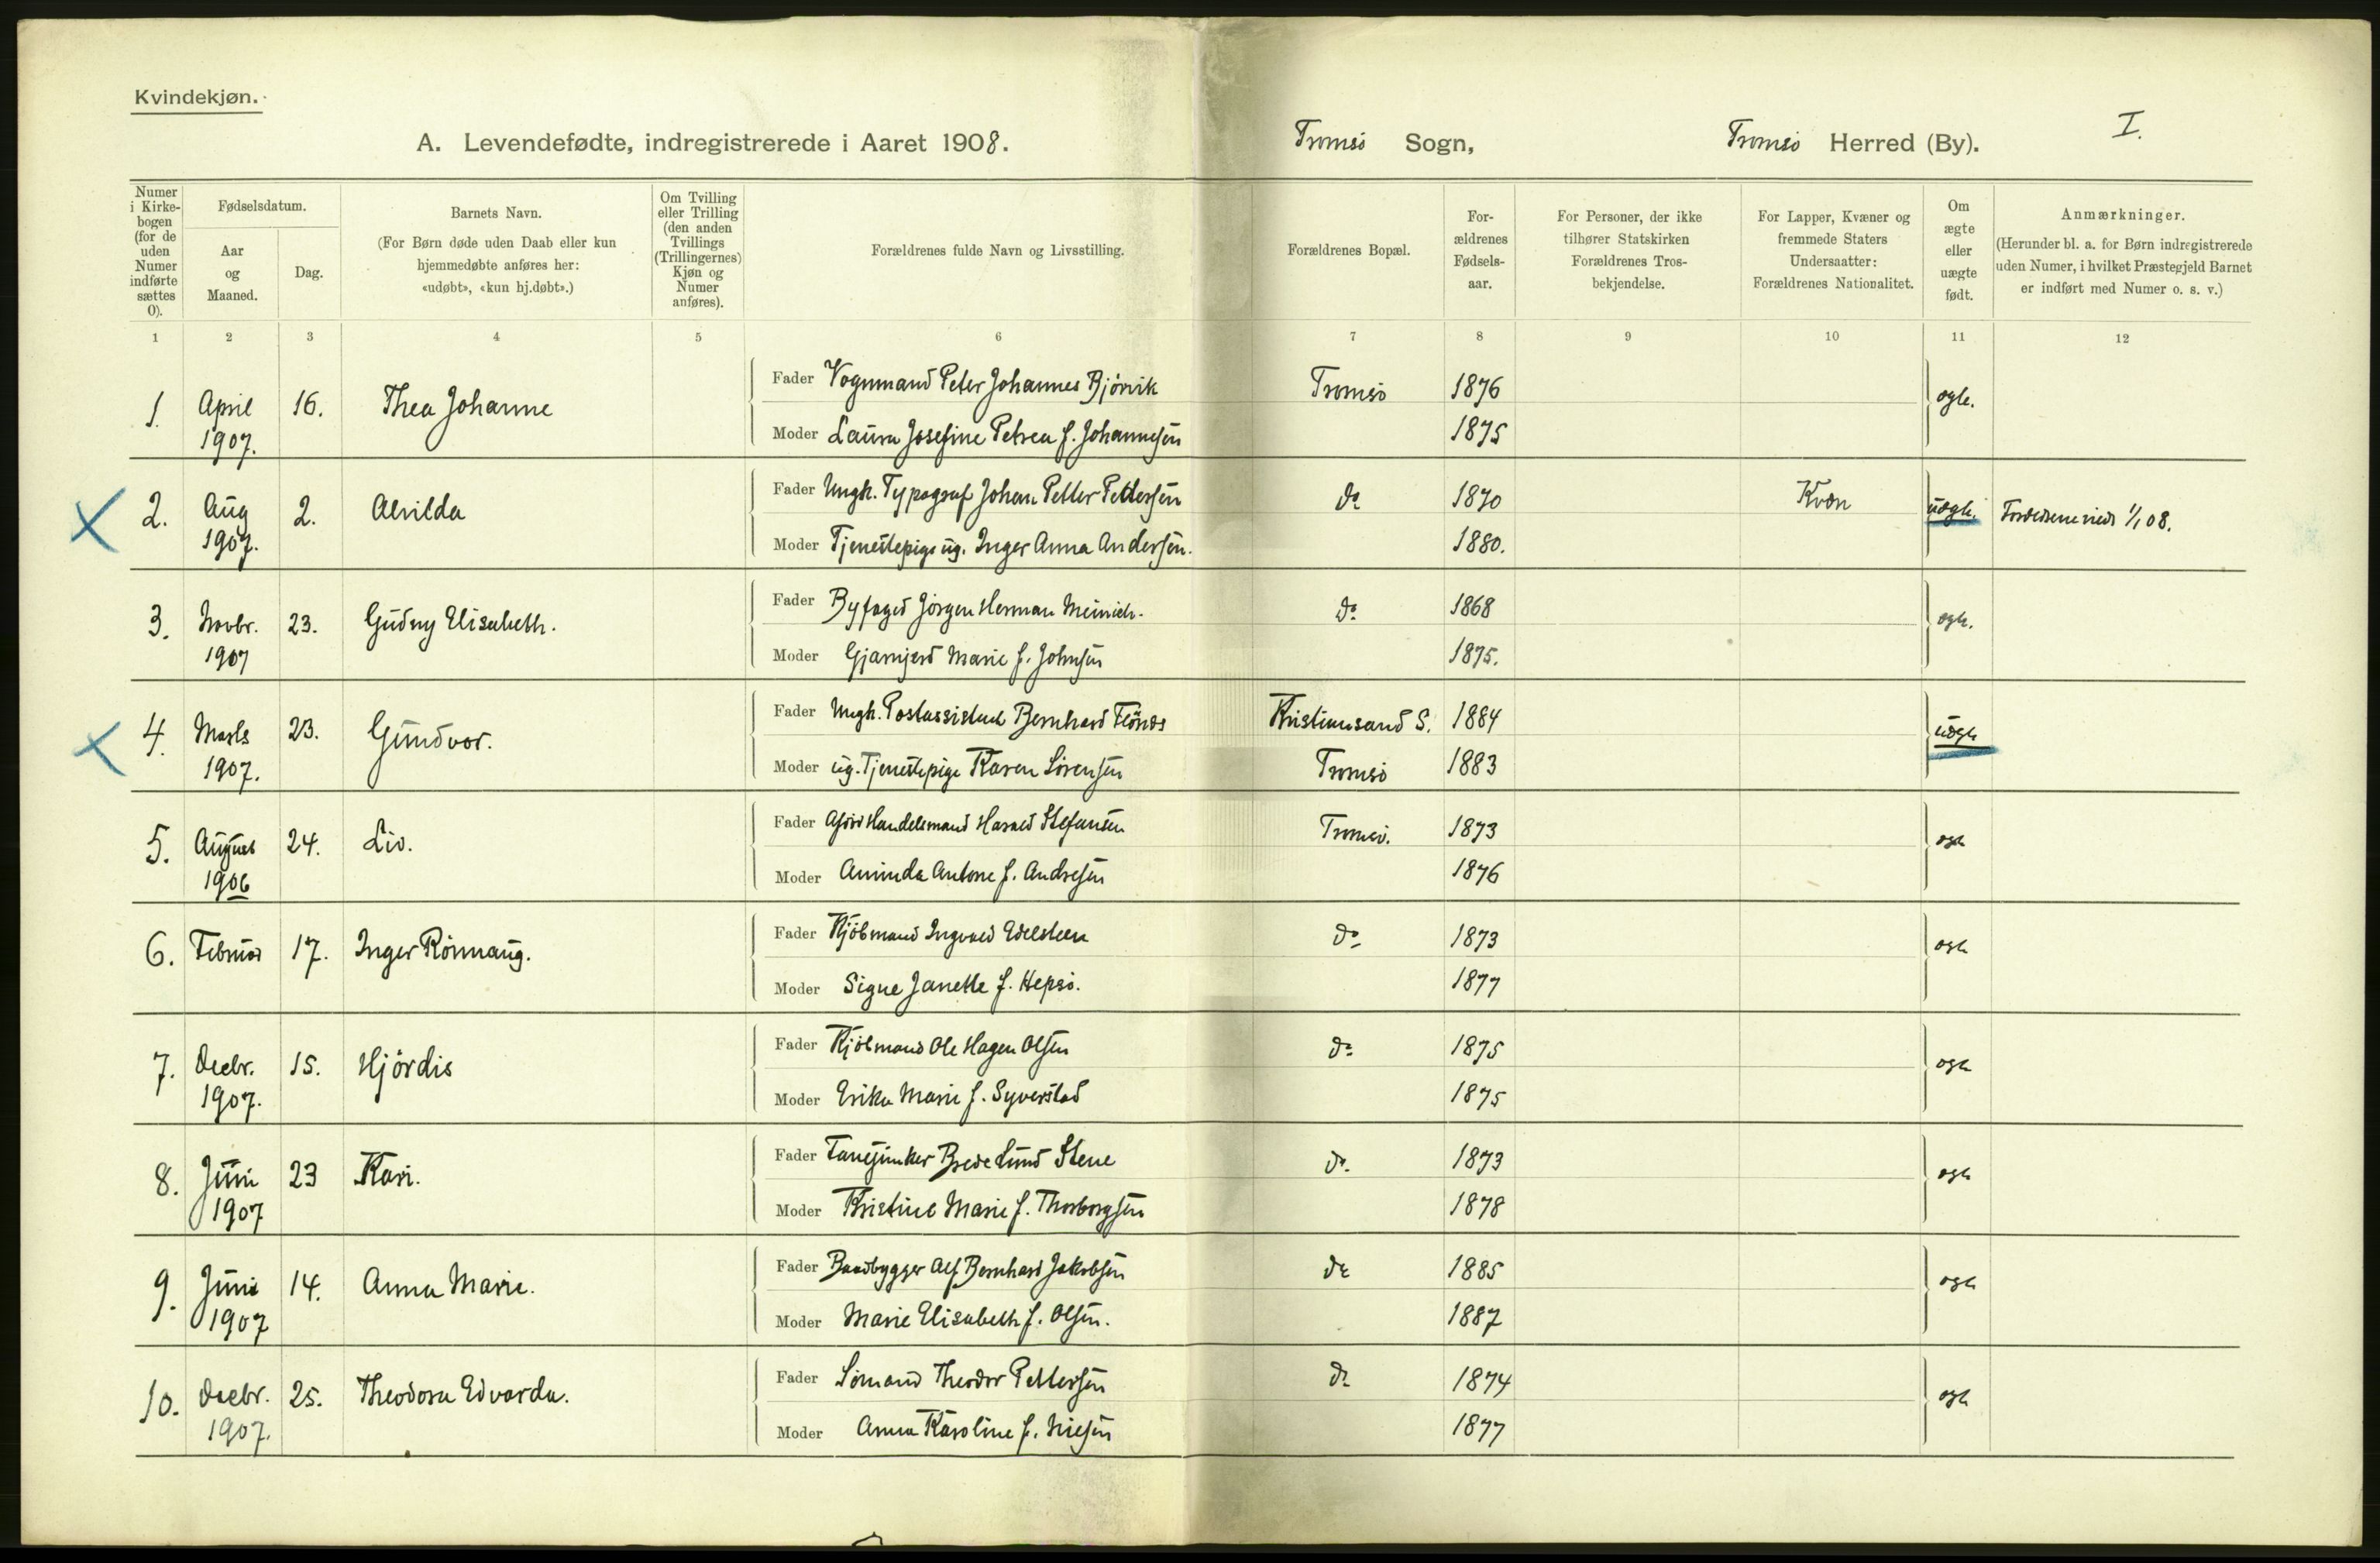 Kvindekjøn.
A. Levendefødte, indregistrerede i Aaret 1908. Tromsø Sogn, Tromsø Herred (By). I.
Numer i Kirkebogen (for de uden Numer indførte sættes 0).
Fødselsdatum.
Aar og Maaned.
Dag.
Barnets Navn.
(For Børn døde uden Daab eller kun hjemmedøbte anføres her: «udøbt», «kun hj.døbt».)
Om Tvilling eller Trilling (den anden Tvillings (Trillingernes) Kjøn og Numer anføres).
Forældrenes fulde Navn og Livsstilling.
Forældrenes Bopæl.
Forældrenes Fødselsaar.
For Personer, der ikke tilhører Statskirken Forældrenes Trosbekjendelse.
For Lapper, Kvæner og fremmede Staters Undersaatter: Forældrenes Nationalitet.
Om ægte eller uægte født.
Anmærkninger.
(Herunder bl. a. for Børn indregistrerede uden Numer, i hvilket Præstegjeld Barnet er indført med Numer o. s. v.)
1 2 3 4 5 6 7 8 9 10 11 12
1. April 1907. 16. Thea Johanne
Fader Vognmand Peter Johannes Bjørvik Tromsø 1876 ægte.
Moder Laura Josefine Petrea f. Johannesen 1875
2. Aug 1907. 2. Alvilda
Fader Ungk. Typograf Johan Petter Pettersen do 1870 Kvæn uægte.
Moder Tjenestepige ug. Inger Anna Andersen. 1880.
Forældrene viede 1/1 08.
3. Novbr. 1907 23. Gudny Elisabeth.
Fader Byfoged Jørgen Herman Meinich. do. 1868 ægte.
Moder Marie f. Johnsen 1875.
4. Marts 1907. 23. Gundvor.
Fader Ungk. Postassistent Bernhard Kristiansand S. 1884 uægte
Moder ug. Tjenestepige Karen Sørensen Tromsø 1883
5. August 1906 24. Liv.
Fader Handelsmand Harald Stefansen Tromsø. 1873 ægte
Moder Antone f. Andresen 1876
6. Februar 17. Inger Rønnaug.
Fader Kjøbmand Ingvald Edelsteen do 1873 ægte
Moder Signe Janette f. Hepsø. 1877
7. Decbr. 1907. 15. Hjørdis
Fader Kjøbmand Ole Hagen Olsen do 1875 ægte
Moder Erika Marie f. Syverstad 1875
8. Juni 1907 23 Kari.
Fader Fanejunker Brede Lund Stene do. 1873 ægte
Moder Kristine Marie f. Thorborgsen 1878
9. Juni 1907 14. Anna Marie.
Fader Baadbygger Alf Bernhard Jakobsen do 1885 ægte
Moder Marie Elisabeth f. Olsen. 1887
10. Decbr. 1907. 25. Theodora Edvarda.
Fader Sømand Theodor Pettersen do 1874 ægte
Moder Anna Karoline f. Nilsen 1877